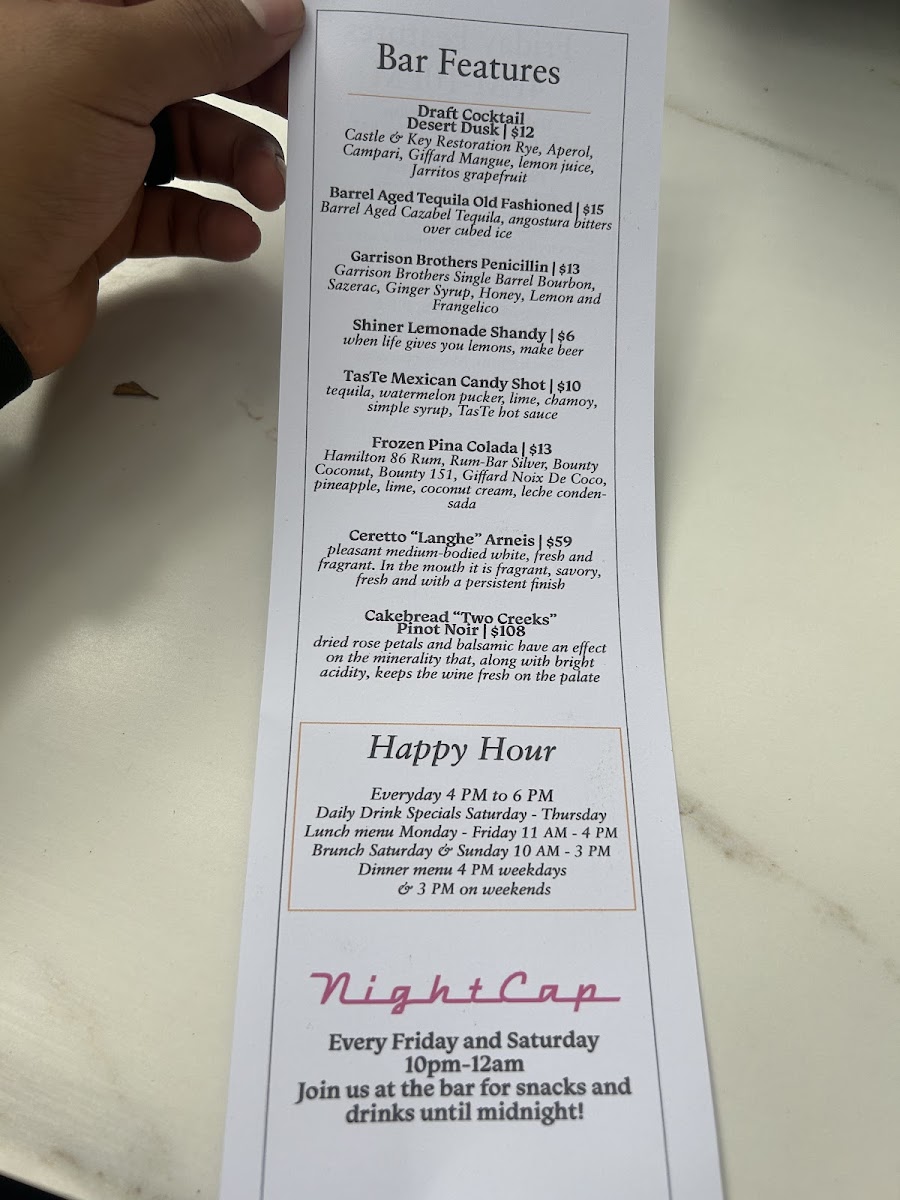 Bar Features
Draft Cocktail
Desert Dusk | $12
Castle & Key Restoration Rye, Aperol,
Campari, Giffard Mangue, lemon juice,
Jarritos grapefruit
Barrel Aged Tequila Old Fashioned | $15
Barrel Aged Cazabel Tequila, angostura bitters
over cubed ice
Garrison Brothers Penicillin | $13
Garrison Brothers Single Barrel Bourbon,
Sazerac, Ginger Syrup, Honey, Lemon and
Frangelico
Shiner Lemonade Shandy | $6
when life gives you lemons, make beer
TasTe Mexican Candy Shot | $10
tequila, watermelon pucker, lime, chamoy,
simple syrup, TasTe hot sauce
Frozen Pina Colada | $13
Hamilton 86 Rum, Rum-Bar Silver, Bounty
Coconut, Bounty 151, Giffard Noix De Coco,
pineapple, lime, coconut cream, leche conden-
sada
Ceretto “Langhe” Arneis | $59
pleasant medium-bodied white, fresh and
fragrant. In the mouth it is fragrant, savory,
fresh and with a persistent finish
Cakebread “Two Creeks”
Pinot Noir | $108
dried rose petals and balsamic have an effect
on the minerality that, along with bright
acidity, keeps the wine fresh on the palate
Happy Hour
Everyday 4 PM to 6 PM
Daily Drink Specials Saturday - Thursday
Lunch menu Monday - Friday 11 AM - 4 PM
Brunch Saturday & Sunday 10 AM - 3 PM
Dinner menu 4 PM weekdays
& 3 PM on weekends
NightCap
Every Friday and Saturday
10pm-12am
Join us at the bar for snacks and
drinks until midnight!